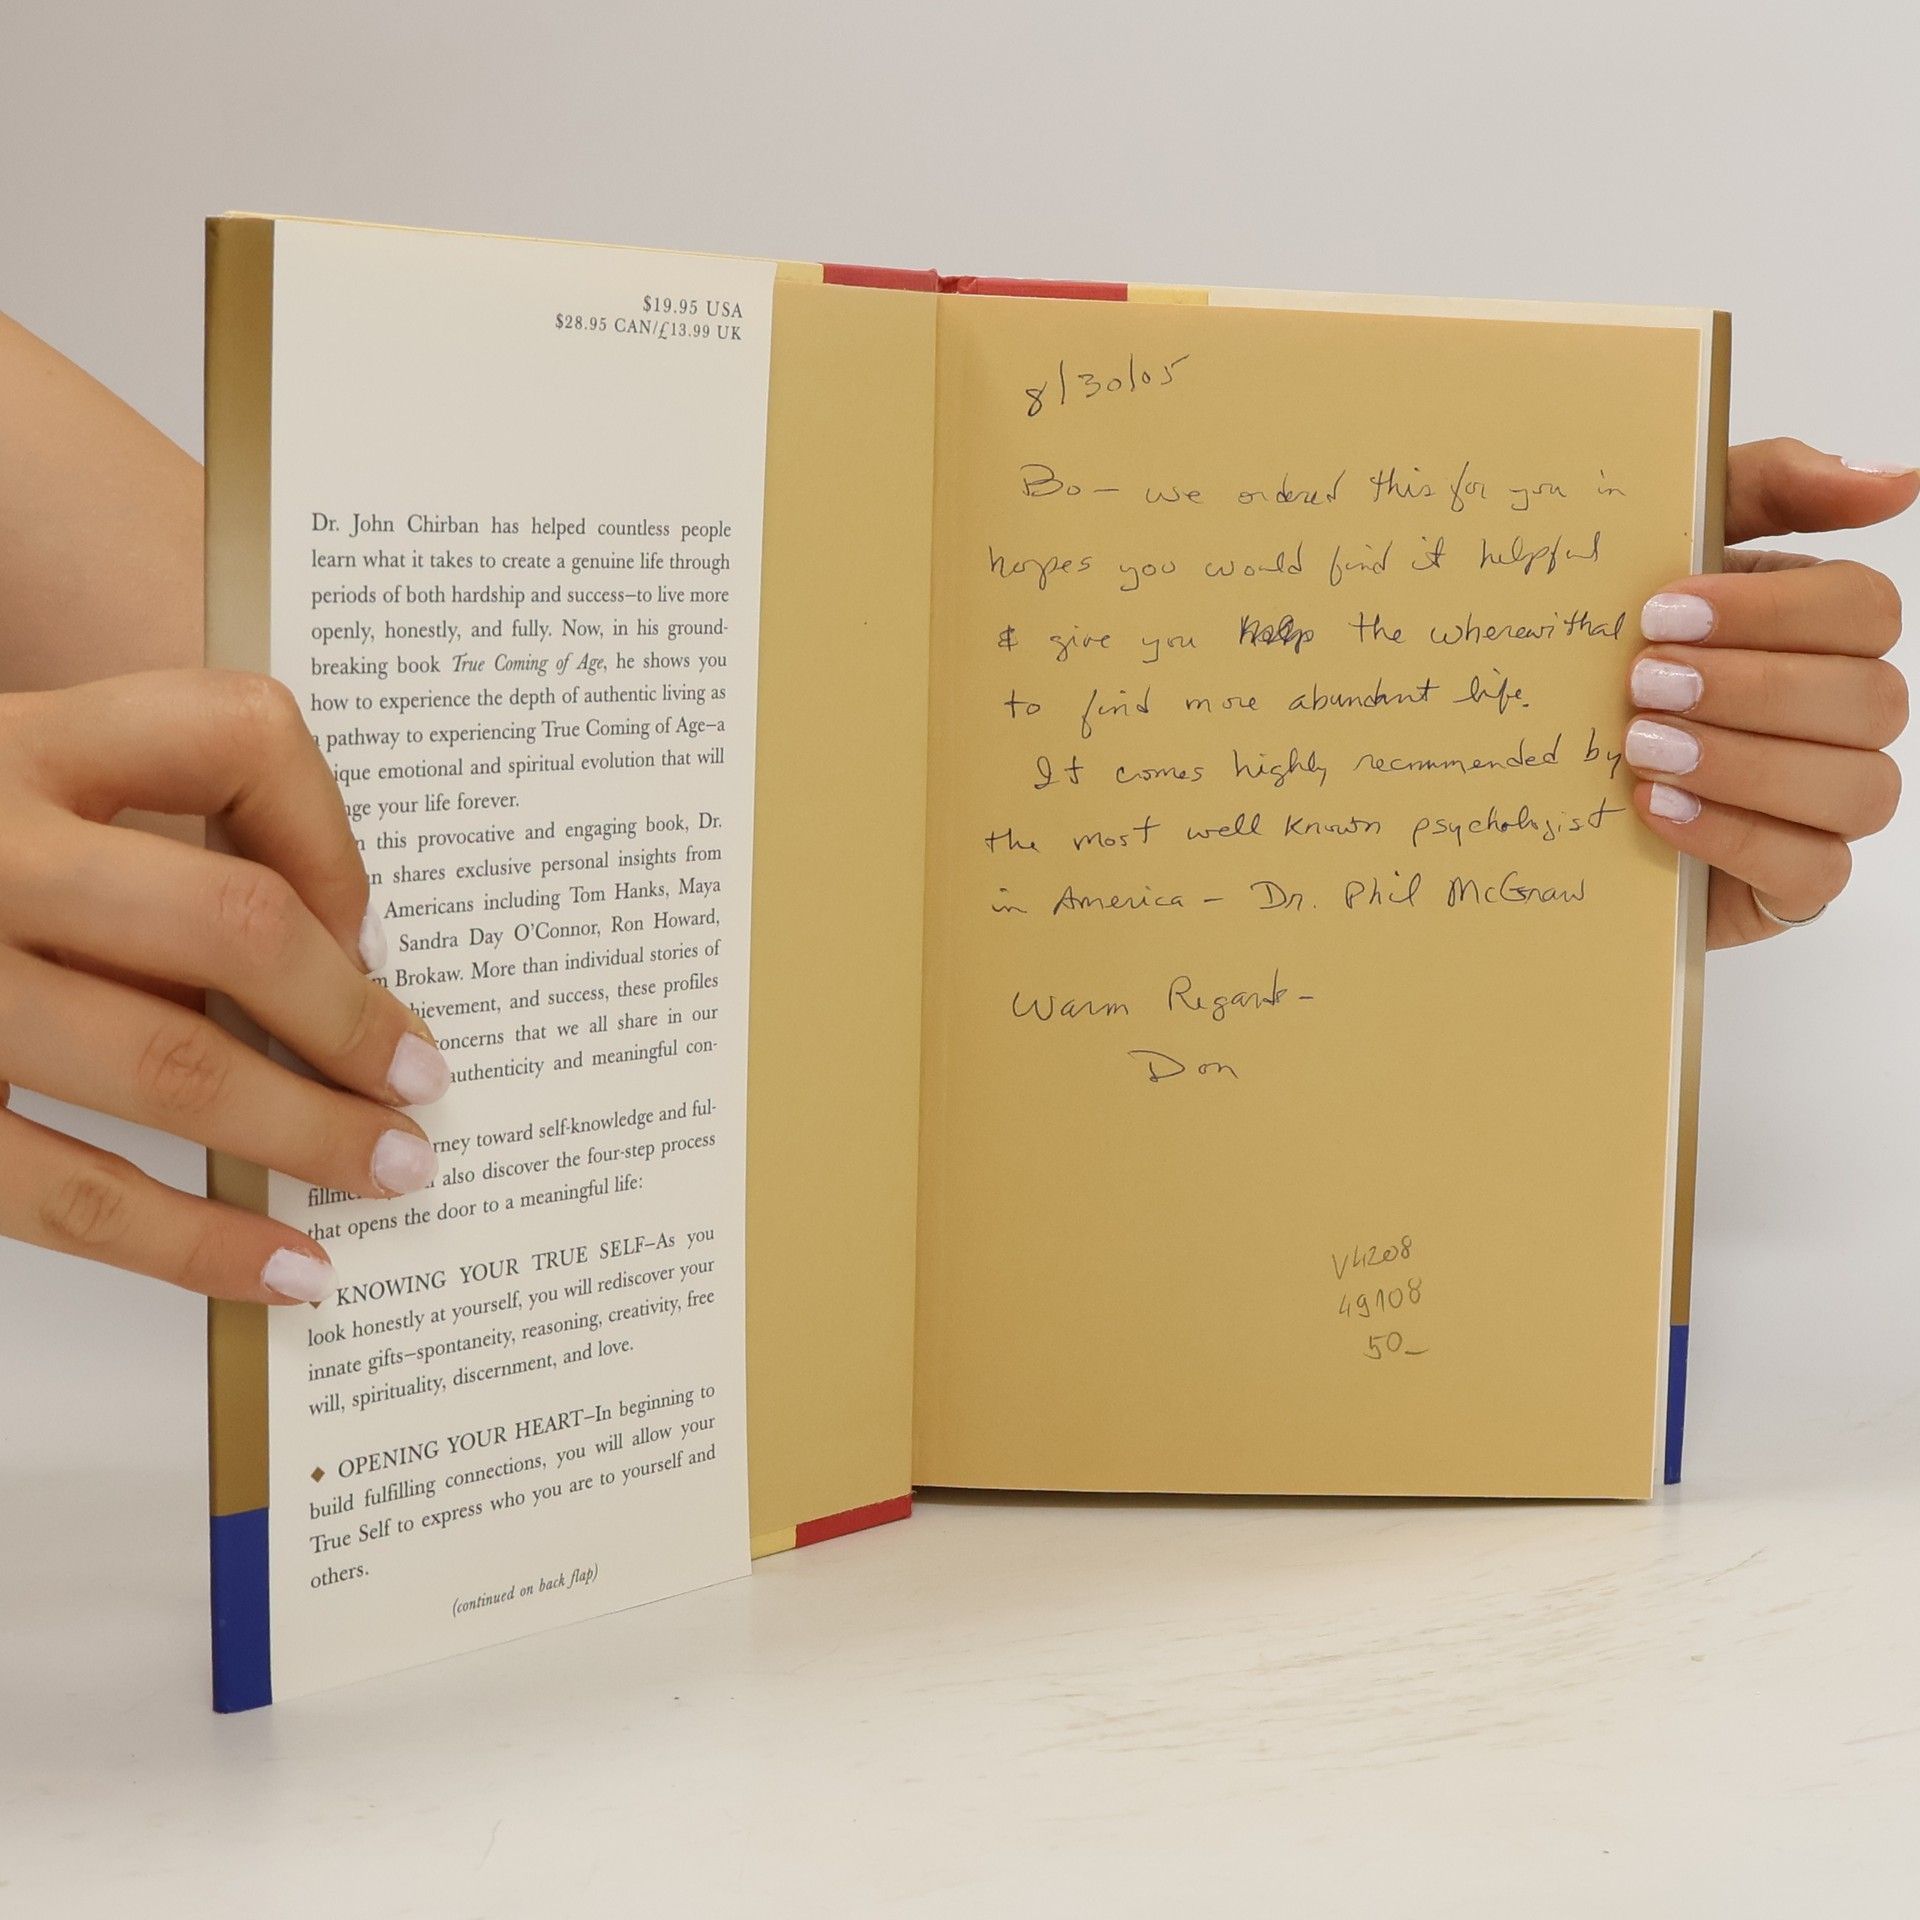 $19.95 USA
$28.95 CAN/£13.99 UK
Dr. John Chirban has helped countless people
learn what it takes to create a genuine life through
periods of both hardship and success–to live more
openly, honestly, and fully. Now, in his ground-
breaking book True Coming of Age, he shows you
how to experience the depth of authentic living as
pathway to experiencing True Coming of Age–a
ique emotional and spiritual evolution that will
nge your life forever.
this provocative and engaging book, Dr.
n shares exclusive personal insights from
Americans including Tom Hanks, Maya
Sandra Day O'Connor, Ron Howard,
m Brokaw. More than individual stories of
hievement, and success, these profiles
concerns that we all share in our
authenticity and meaningful con-
rney toward self-knowledge and ful-
fillme also discover the four-step process
that opens the door to a meaningful life:
◆ KNOWING YOUR TRUE SELF–As you
look honestly at yourself, you will rediscover your
innate gifts–spontaneity, reasoning, creativity, free
will, spirituality, discernment, and love.
◆ OPENING YOUR HEART–In beginning to
build fulfilling connections, you will allow your
True Self to express who you are to yourself and
others.
(continued on back flap)
8/30/05
Bo – we ordered this for you in
hopes you would find it helpful
& give you the wherewithal
to find more abundant life.
It comes highly recommended by
the most well known psychologist
in America – Dr. Phil McGraw
Warm Regards –
Don
V4208
49108
50_